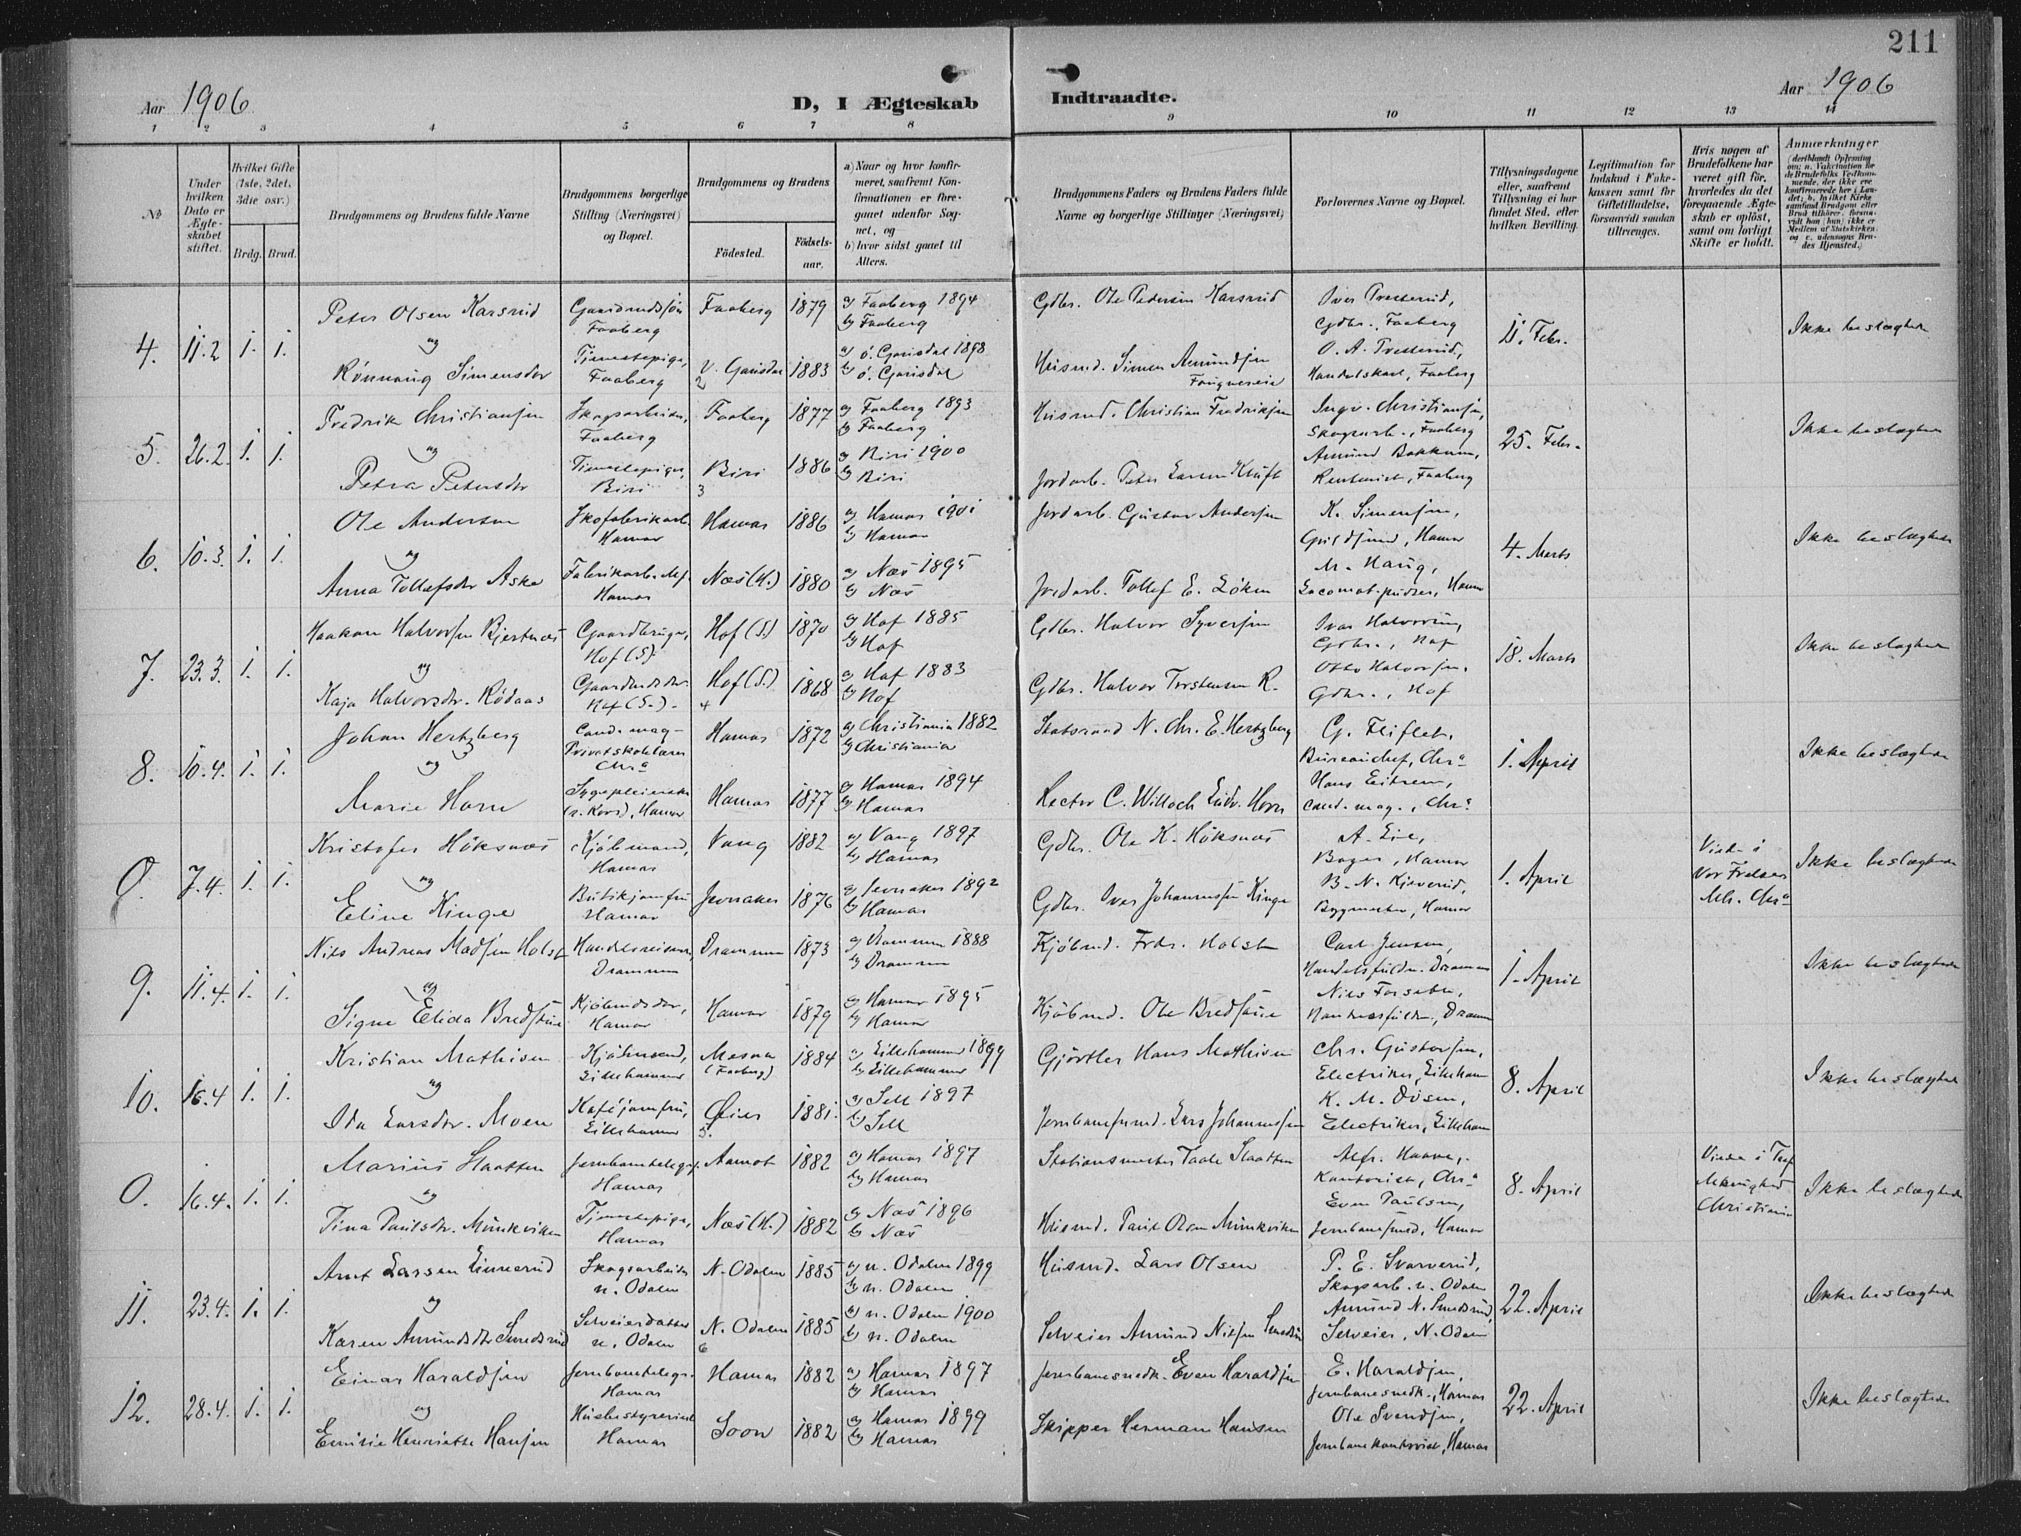 211
Aar 1906
D, I Ægteskab Indtraadte.
Aar 1906
1 2 3 4 5 6 7 8 9 10 11 12 13 14
No
Under hvilken Dato er Ægteskabet stiftet.
Hvilket Gifte (1ste, 2det, 3die osv.)
Brdg. Brud.
Brudgommens og Brudens fulde Navne
Brudgommens borgerlige Stilling (Næringsvei) og Bopæl.
Brudgommens og Brudens
Födested.
Födselsaar.
a) Naar og hvor konfirmeret, saafremt Konfirmationen er foregaaet udenfor Sognet, og
b) hvor sidst gaaet til Alters.
Brudgommens Faders og Brudens Faders fulde Navne og borgerlige Stillinger (Næringsvei)
Forlovernes Navne og Bopæl.
Tillysningsdagene eller, saafremt Tillysning ei har fundet Sted, efter hvilken Bevilling.
Legitimation for Indskud i Enkekassen samt for Giftetilladelse, forsaavidt saadan tiltrænges.
Hvis nogen af Brudefolkene har været gift för, hvorledes da det foregaaende Ægteskab er oplöst, samt om lovligt Skifte er holdt.
Anmærkninger
4. 11.2 1. 1.
Peter Olsen Karsrud
og
Rönnaug Simensdr
Gaardmandssön Faaberg
Tjenestepige, Faaberg
Faaberg 1879
V. Gausdal 1883
2
a) Faaberg 1894
b) Faaberg
a) ö. Gausdal 1898
b) ö. Gausdal
Gdbr. Ole Pedersen Karsrud
Husmd. Simen Amundsen
Iver Presterud, Gdbr., Faaberg
O. A. Presterud, Handelskarl, Faaberg
11. Febr.
Ikke beslægtede
5. 26.2. 1. 1.
Fredrik Christiansen
og
Petra Petersdr
Skogsarbeider, Faaberg
Tjenestepige, Biri
Faaberg 1877
Biri 1886
3
a) Faaberg 1893
b) Faaberg
a) Biri 1900
b) Biri
Husmd. Christian Fredriksen
Jordarb. Peter Larsen Kluft
Ingv. Christiansen, Skogsarb., Faaberg
Amund Bakkum, Rentenist, Faaberg
25. Febr.
Ikke beslægtede
6. 10.3. 1. 1.
Ole Andersen
og
Anna Tollefsdr Aske
Skofabrikarb. Hamar
Fabrikarb. Hamar
Hamar 1886
Næs (H.) 1880
a) Hamar 1901
b) Hamar
a) Næs 1895
b) Næs
Jordarb. Gustav Andersen
Jordarb. Tollef E. Löken
K. Simensen, Hamar
M. Haug, Locomotivpudser, Hamar
4. Marts
Ikke beslægtede
7. 23.3. 1. 1.
Haakon Halvorsen Bjertnæs
og
Kaja Halvorsdr. Rödaas
Gaardbruger, Hof (S).
Gaardmdsdtr. Hof (S.)
Hof (S.) 1870
Hof (S.) 1868
4
a) Hof 1885
b) Hof
a) Hof 1883
b) Hof
Gdbr. Halvor Syversen
Gdbr. Halvor Torstensen R.
Ivar Halvorsen, Gdbr., Hof
Otto Halvorsen, Gdbr., Hof
18. Marts
Ikke beslægtede
8. 10.4. 1. 1.
Johan Hertzberg
og
Marie Horn
Cand. mag. Privatskolelærer Chra
Sygepleierske (r. Kors), Hamar
Hamar 1872
Hamar 1877
a) Christiania 1882
b) Christiania
a) Hamar 1894
b) Hamar
Statsraad N. Chr. E. Hertzberg
Rector C. Willoch Ludv. Horn
G. Fliflet, Bureauchef, Chra
Hans Eitrem, cand. mag., Chra
1. April
Ikke beslægtede
0. 7.4. 1. 1.
Kristofer Höksnæs
og
Eline Kinge
Kjöbmand, Hamar
Butikjomfru Hamar
Vang 1882
Jevnaker 1876
a) Vang 1897
b) Hamar
a) Jevnaker 1892
b) Hamar
Gdbr. Ole K. Höksnæs
Gdbr. Iver Johannessen Kinge
A. Lie, Bager, Hamar
B. N. Kjeverud, Bygmester, Hamar
1. April
Viede i Vor Frelsers Mh. Chra
Ikke beslægtede
9. 11.4. 1. 1.
Nils Andreas Madsen Holst
og
Signe Elida Bredstue
Handelsreisende, Drammen
Kjöbmdsdtr, Hamar
Drammen 1873
Hamar 1879
a) Drammen 1888
b) Drammen
a) Hamar 1895
b) Hamar
Kjöbmd. Frdr. Holst
Kjöbmd. Ole Bredstue
Carl Jensen, Handelsfuldm. Drammen
Nils Forsæth, Handelsfuldm., Drammen
1. April
Ikke beslægtede
10. 16.4 1. 1.
Kristian Mathisen
og
Ida Larsdr. Moen
Kjöbmand, Lillehammer
Kaféjomfru, Lillehammer
Mesna (Faaberg) 1884
Öier 1881.
5.
a) Lillehammer 1899
b) Lillehammer
a) Sell 1897
b) Sell
Gjörtler Hans Mathisen
Jernbanefmd. Lars Johannessen
Chr. Gustavsen, Electriker, Lilleham
K. M. Olsen, Electriker, Lilleham
8. April
Ikke beslægtede
0. 16.4. 1. 1.
Marius Slaatten
og
Tina Paulsdr. Munkviken
Jernbanetelegr. Hamar
Tjenestepige, Hamar
Aamot 1882
Næs (H.) 1882
a) Hamar 1897
b) Hamar
a) Næs 1896
b) Næs
Stationsmester Taale Slaatten
Husmd. Paul Olsen Munkviken
Alfr. Haave, Kontorist, Chra
Even Paulsen, Jernbanefmd., Hamar
8. April
Viede i Menighed Christiania
Ikke beslægtede
11. 23.4. 1. 1.
Arnt Larsen Linnerud
og
Karen Amundsdtr Smedsrud
Skogsarbeider n. Odalen
Selveierdatter n. Odalen
N. Odalen 1885
N. Odalen 1885
6
a) n. Odalen 1899
b) n. Odalen
a) n. Odalen 1900
b) n. Odalen
Husmd. Lars Olsen
Selveier Amund Nilsen Smedsrud
P. E. Svarverud, Skogsarb. n. Odalen
Amund N. Smedsrud, Selveier, N. Odalen
22. April
Ikke beslægtede
12. 28.4. 1. 1.
Einar Haraldsen
og
Emilie Henriette Hansen
Jernbanetelegr. Hamar
Husbestyrerinde Hamar
Hamar 1882
Soon 1882
a) Hamar 1897
b) Hamar
a) Hamar 1899
b) Hamar
Jernbanesnedk. Even Haraldsen
Skipper Herman Hansen
E. Haraldsen, Jernbanesnedk., Hamar
Ole Svendsen, Jernbanekontorist, Hamar
22. April
Ikke beslægtede